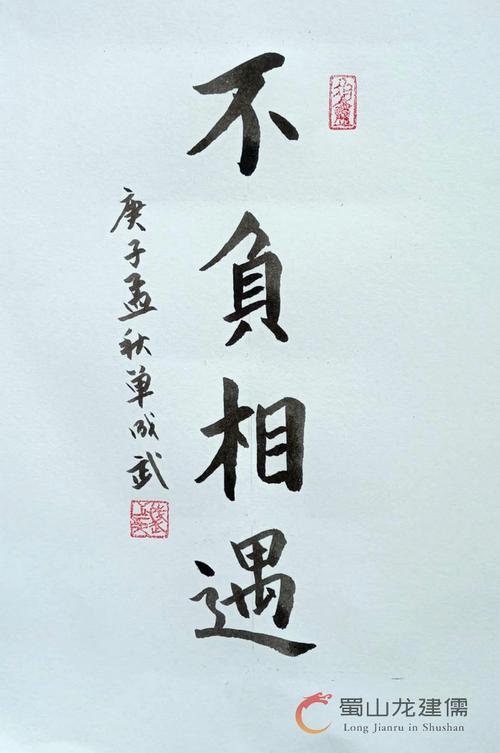 不負相遇
庚子孟秋单成武
蜀山龙建儒
Long Jianru in Shushan